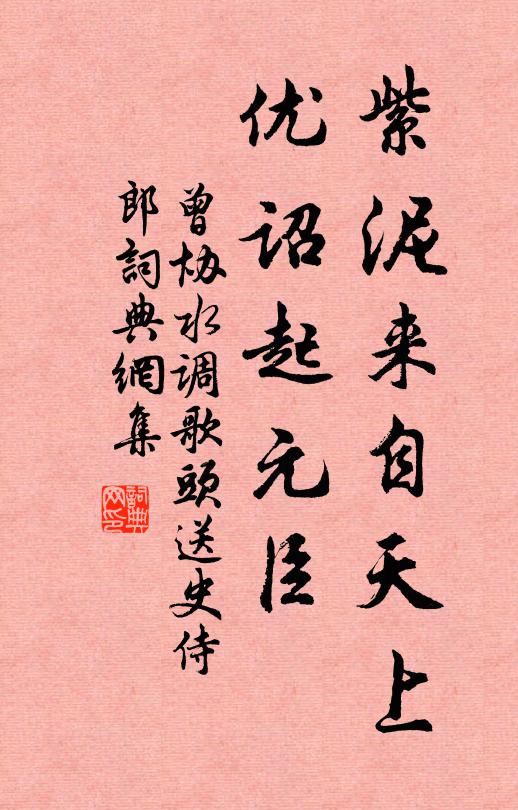 紫泥来自天上
优诏起元臣
曾协水调歌头送史侍
郎詞典網集
詞典网印